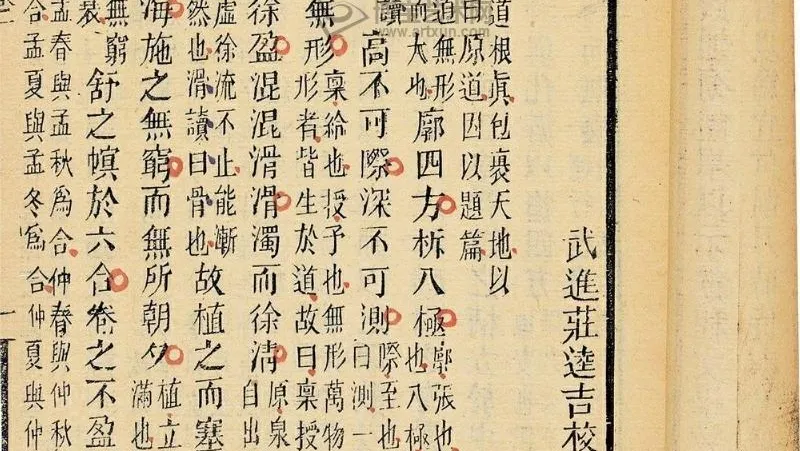 武進莊逵吉校
道根眞包裹天地以
曰原道因以題篇
道無形
而大也
廓四方柝八極
廓張也
也八極
讀
高不可際深不可測
際至也
曰測一
無形
稟給也授予也無形萬物
形者皆生於道故曰稟授
徐盈混混滑滑濁而徐淸
原泉
自出
虛徐流不止能漸
然也滑讀曰骨也
故植之而塞
海施之無窮而無所朝夕
植立
滿也
無窮
舒之幎於六合卷之不盈
孟春與孟秋爲合仲春與仲秋
合孟夏與孟冬爲合仲夏與仲
一
www.artxun.com